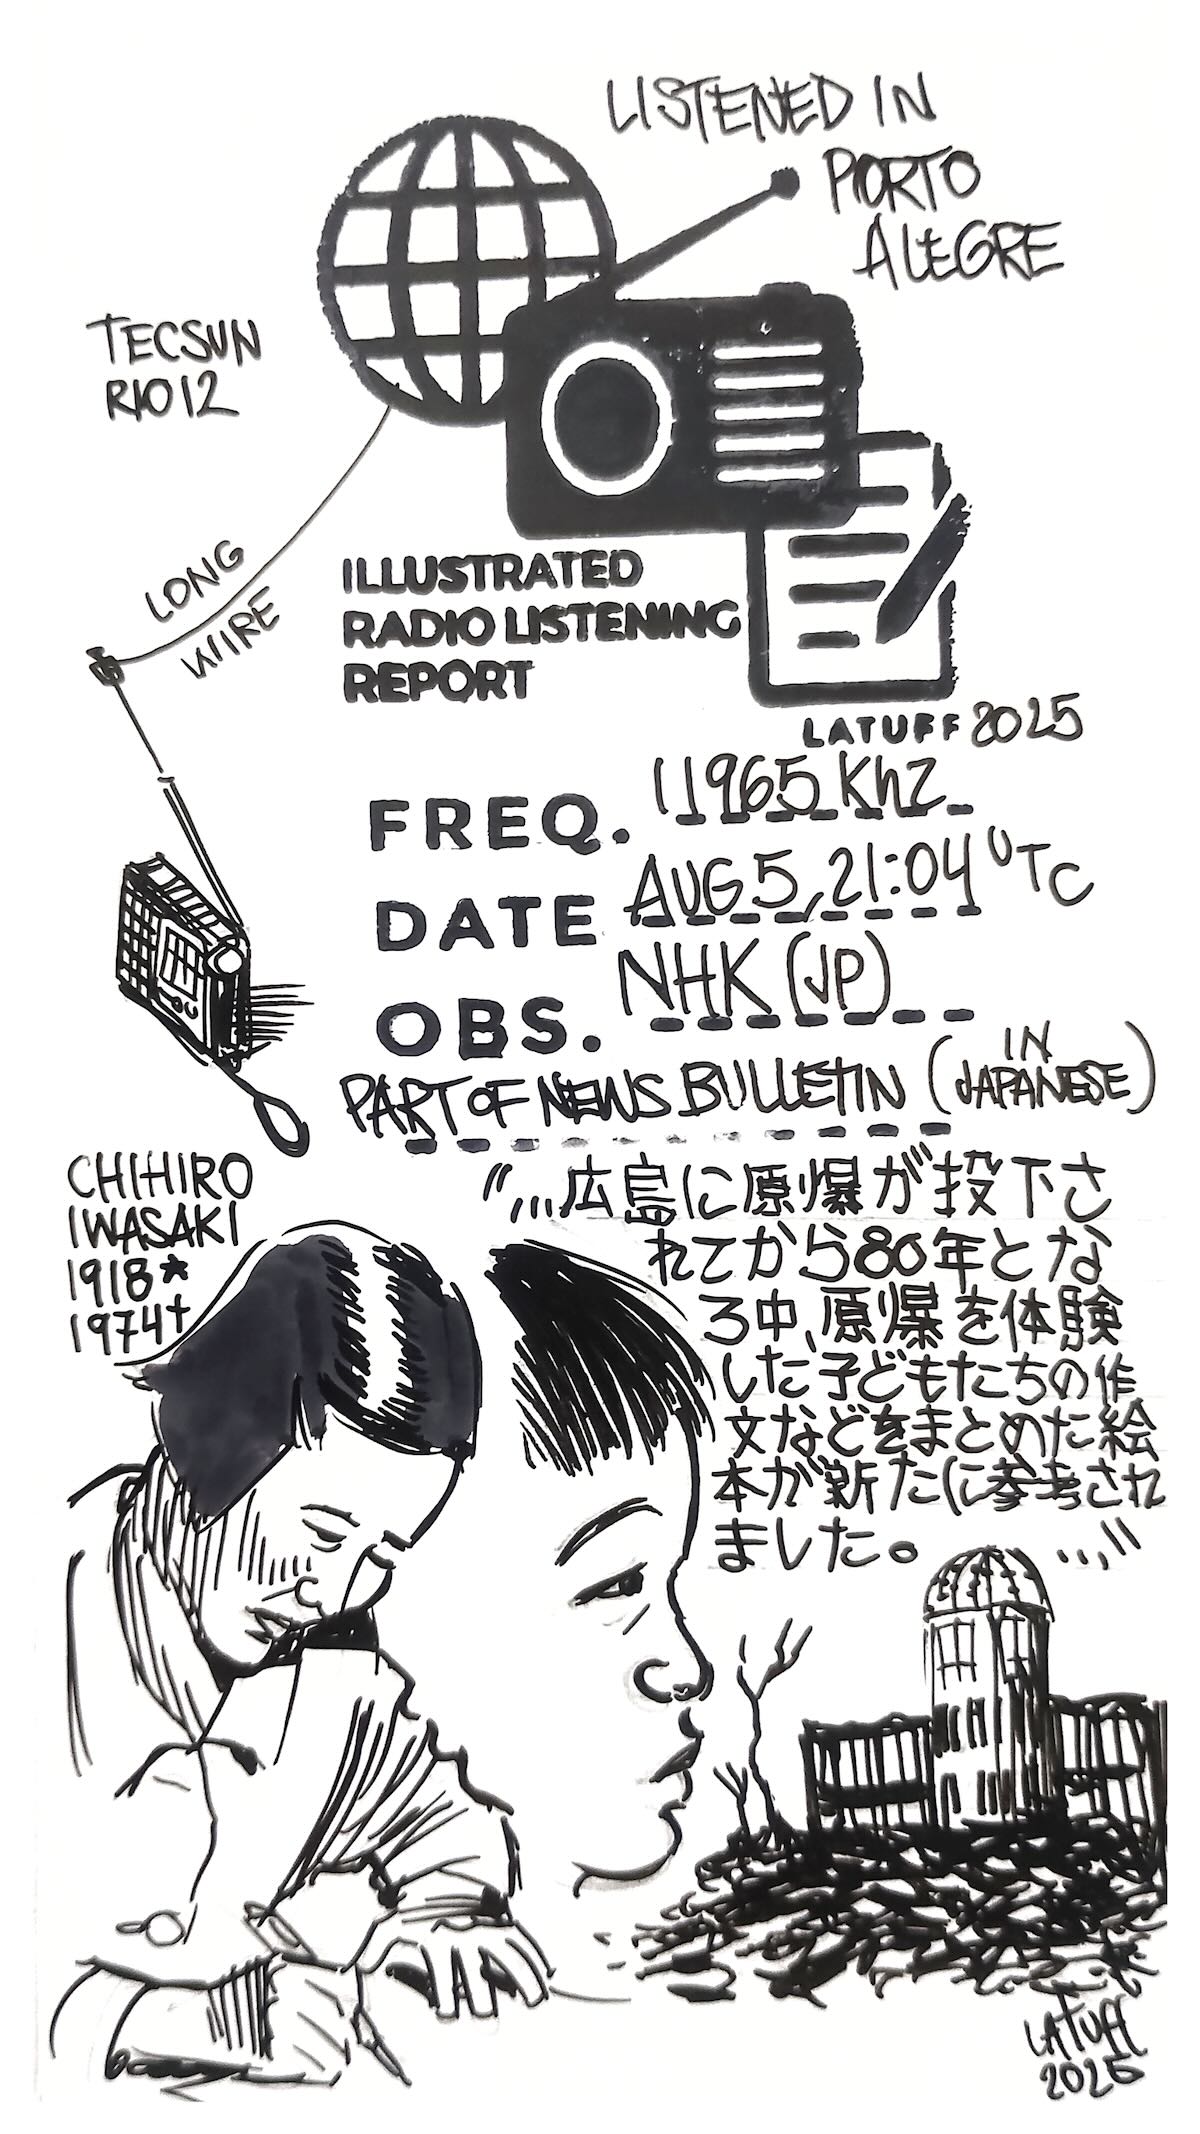 LISTENED IN
PORTO
ALEGRE
TECSUN
R1012
LONG
WIRE
ILLUSTRATED
RADIO LISTENING
REPORT
LATUFF 2025
FREQ. 11965 KhZ
DATE AUG 5, 21:04 UTC
OBS. NHK (JP)
PART OF NEWS BULLETIN (IN JAPANESE)
CHIHIRO
IWASAKI
1918*
1974†
"...広島に原爆が投下さ
れてから80年とな
ろ中、原爆を体験
した子どもたちの作
文などをまとめた絵
本が新たに参考され
ました。..."
LATUFF
2025